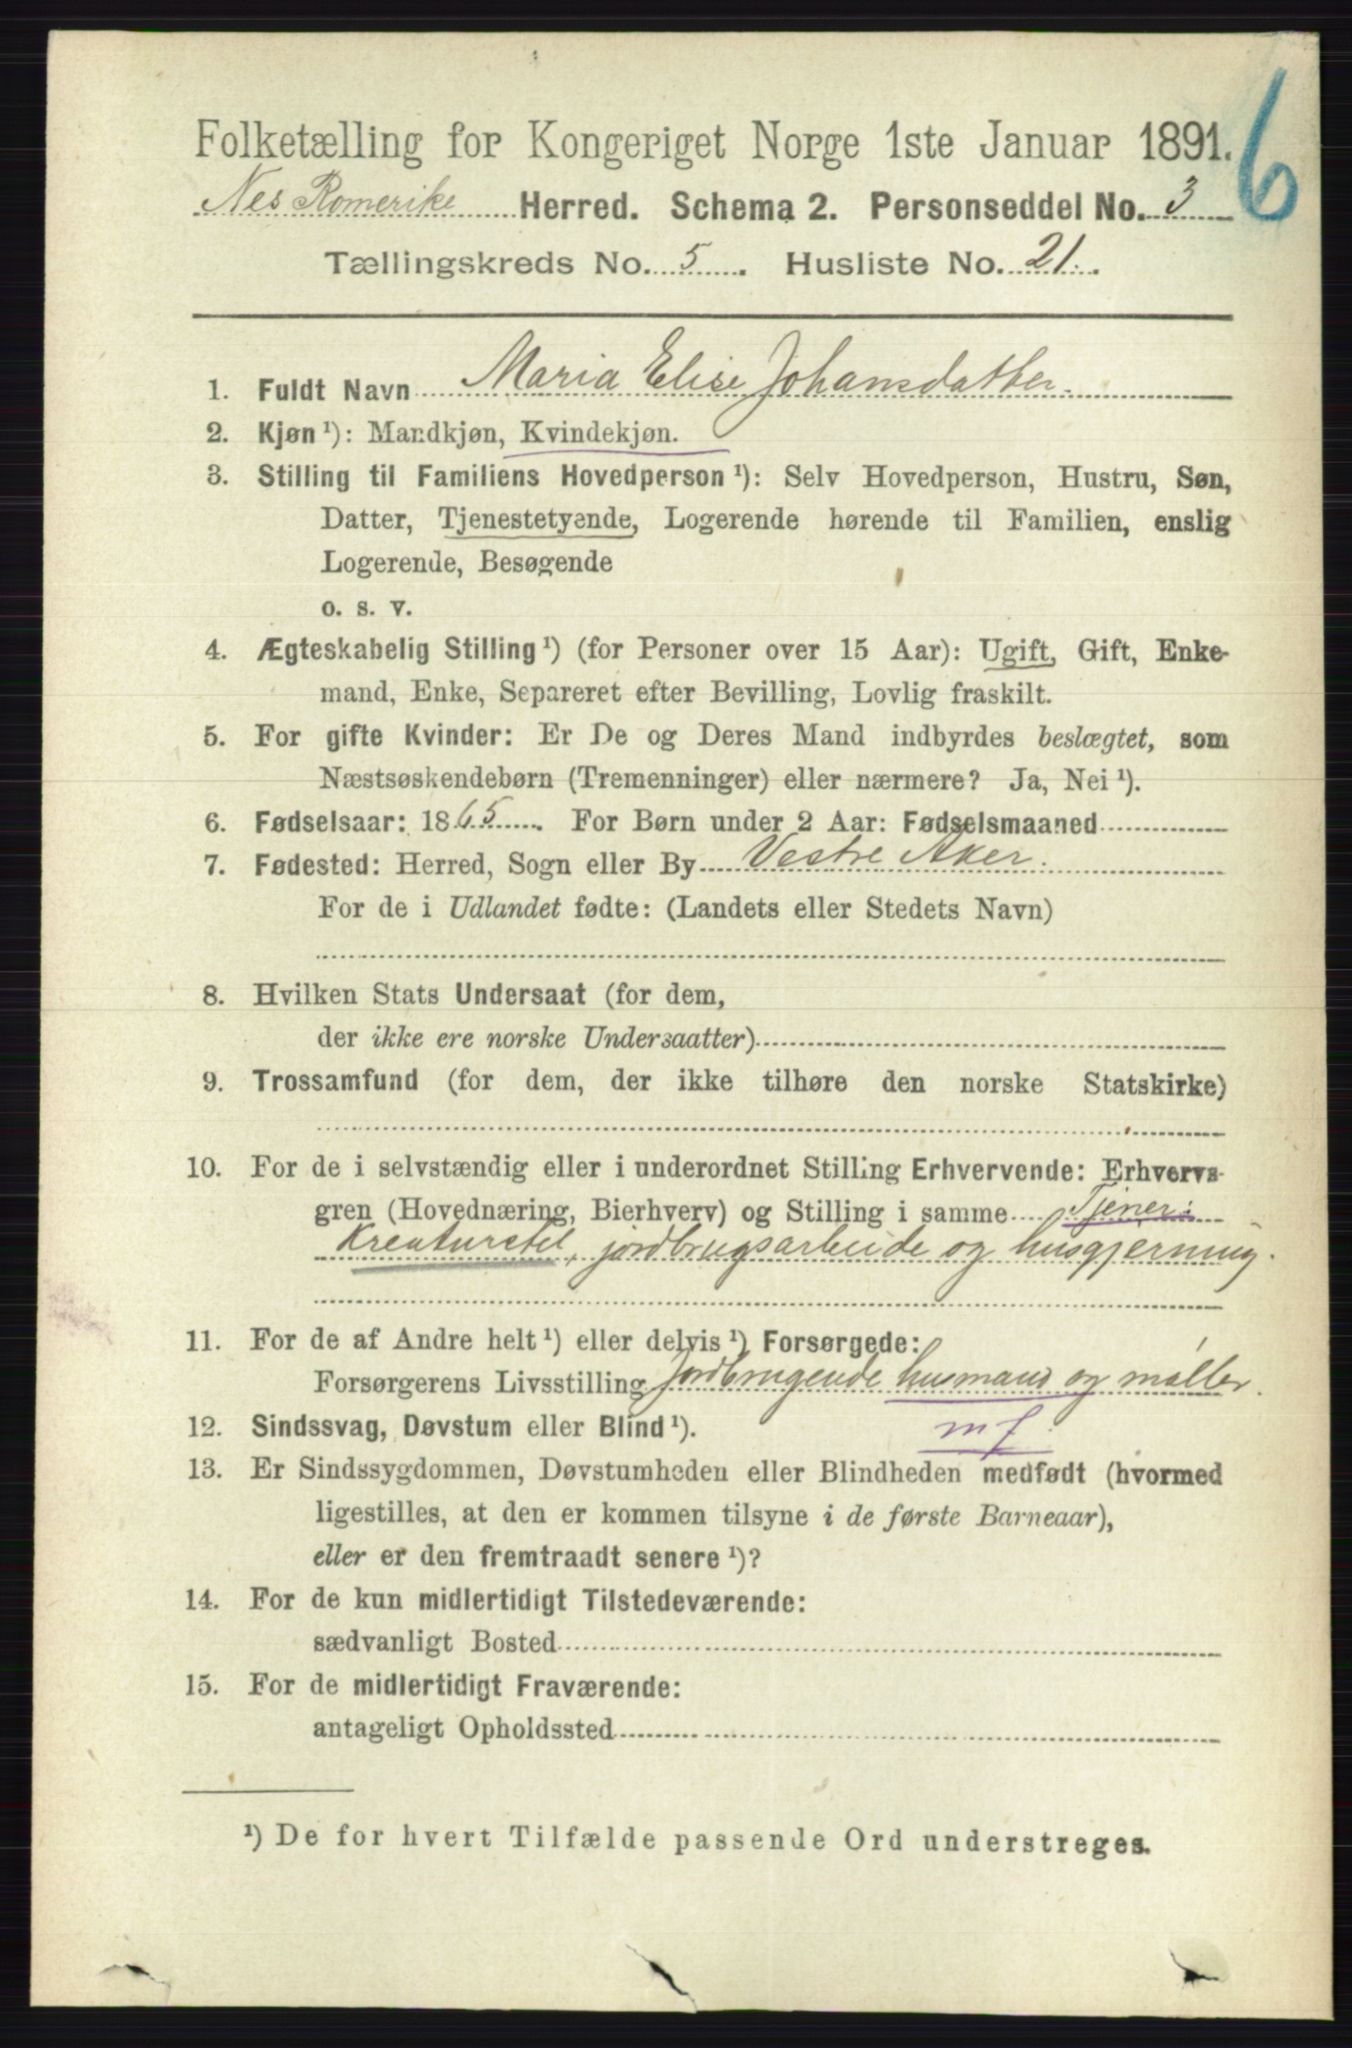 6
Folketælling for Kongeriget Norge 1ste Januar 1891.
Nes Romerike Herred. Schema 2. Personseddel No. 3
Tællingskreds No. 5. Husliste No. 21.
1. Fuldt Navn Maria Elise Johansdatter.
2. Kjøn ¹): Mandkjøn, Kvindekjøn.
3. Stilling til Familiens Hovedperson ¹): Selv Hovedperson, Hustru, Søn,
Datter, Tjenestetyende, Logerende hørende til Familien, enslig
Logerende, Besøgende
o. s. v.
4. Ægteskabelig Stilling ¹) (for Personer over 15 Aar): Ugift, Gift, Enke-
mand, Enke, Separeret efter Bevilling, Lovlig fraskilt.
5. For gifte Kvinder: Er De og Deres Mand indbyrdes beslægtet, som
Næstsøskendebørn (Tremenninger) eller nærmere? Ja, Nei ¹).
6. Fødselsaar: 1865. For Børn under 2 Aar: Fødselsmaaned
7. Fødested: Herred, Sogn eller By Vestre Aker.
For de i Udlandet fødte: (Landets eller Stedets Navn)
8. Hvilken Stats Undersaat (for dem,
der ikke ere norske Undersaatter)
9. Trossamfund (for dem, der ikke tilhøre den norske Statskirke)
10. For de i selvstændig eller i underordnet Stilling Erhvervende: Erhvervs-
gren (Hovednæring, Bierhverv) og Stilling i samme Tjener:
Kreaturstel, jordbrugsarbeide og husgjerning.
11. For de af Andre helt ¹) eller delvis ¹) Forsørgede:
Forsørgerens Livsstilling Jordbrugende husmand og møller.
12. Sindssvag, Døvstum eller Blind ¹). mf
13. Er Sindssygdommen, Døvstumheden eller Blindheden medfødt (hvormed
ligestilles, at den er kommen tilsyne i de første Barneaar),
eller er den fremtraadt senere ¹)?
14. For de kun midlertidigt Tilstedeværende:
sædvanligt Bosted
15. For de midlertidigt Fraværende:
antageligt Opholdssted
¹) De for hvert Tilfælde passende Ord understreges.